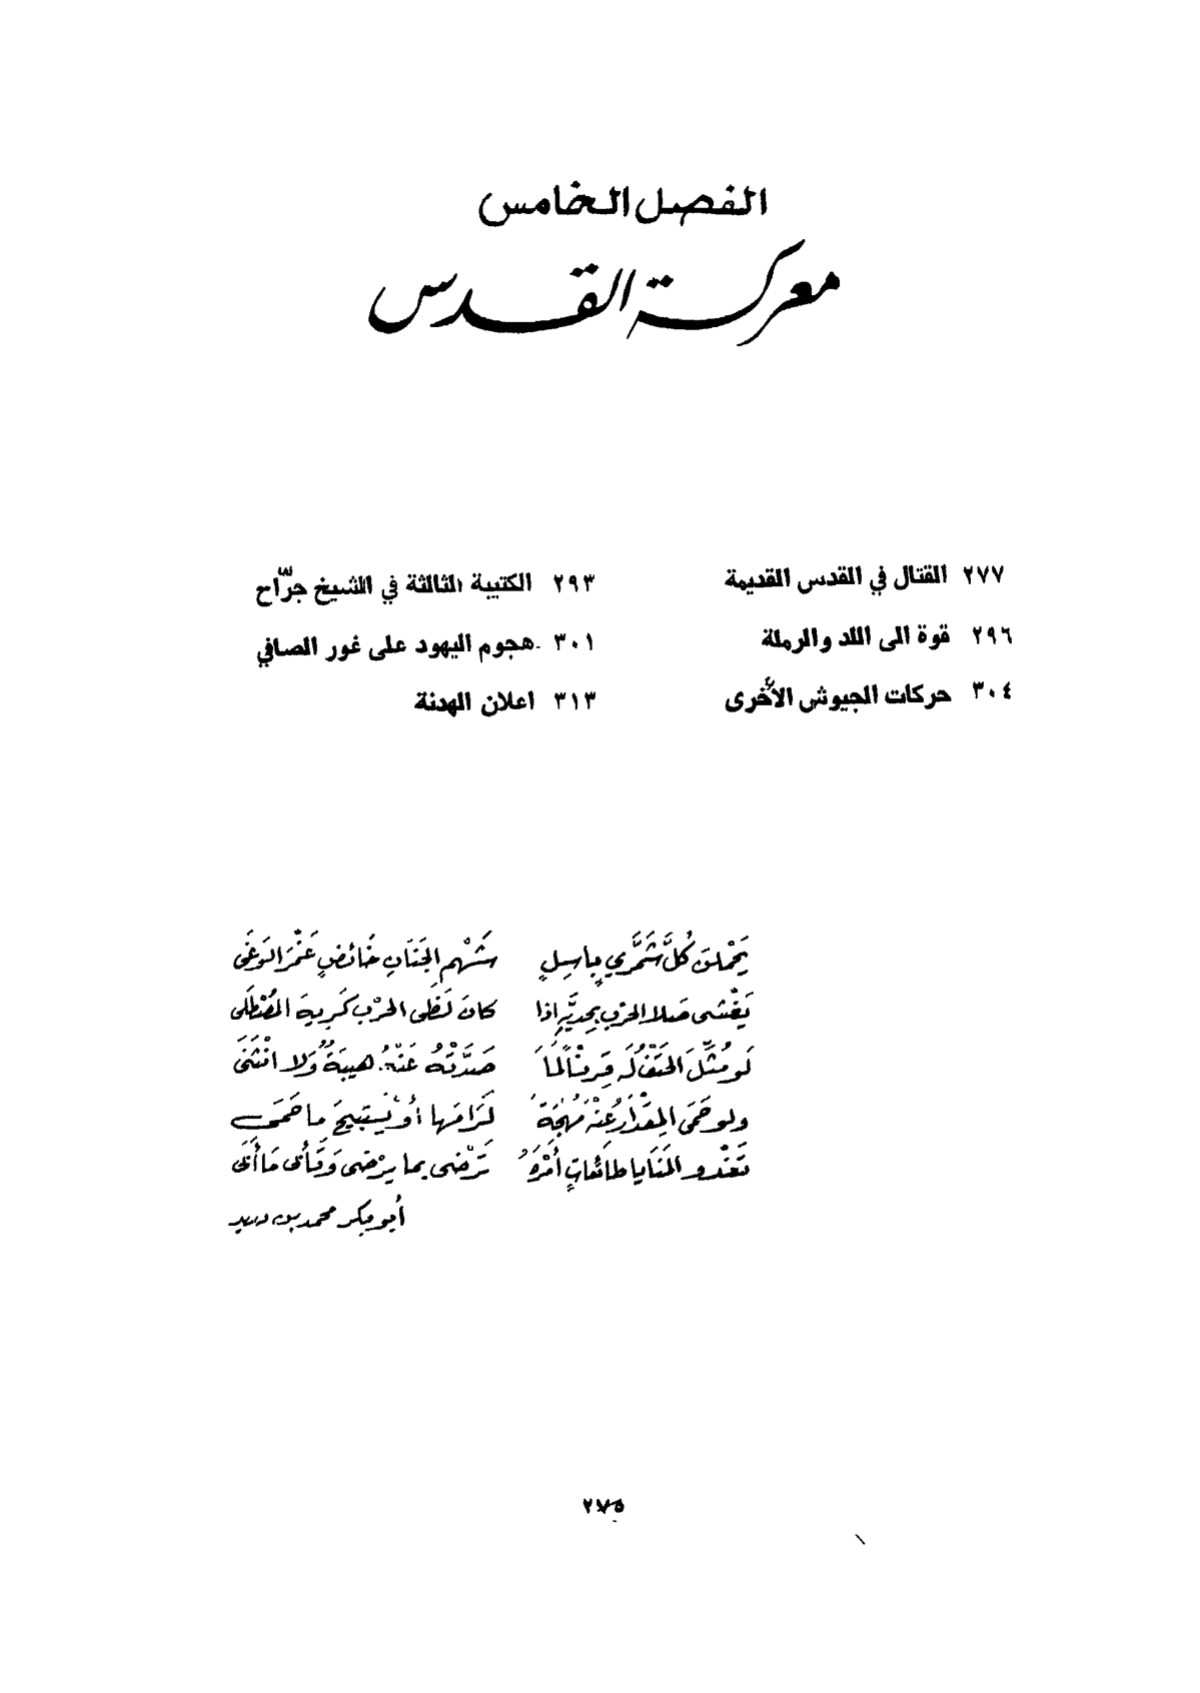 الفصل الخامس
معركة القدس
٢٧٧ القتال في القدس القديمة
٢٩٣ الكتيبة الثالثة في الشيخ جرّاح
٢٩٦ قوة الى اللد والرملة
٣٠١ هجوم اليهود على غور الصافي
٣٠٤ حركات الجيوش الأخرى
٣١٣ اعلان الهدنة
يَحْمِلْنَ كُلَّ شَمَّرِيٍ بِاسِلٍ شَهْمِ الجَنَانِ خَائضٍ غَمْرَ الوَغَى
يَغْشَى صَلا الحَرْبِ بِحَدَّيْهِ إذا كانَ لَظَى الحَرْبِ كَرِيهَ المُصْطَلَى
لَو مُثِّلَ الحَتْفُ لَه قِرْنًا لَمَا صَدَّتْهُ عَنْهُ هيبَةٌ وَلا انْثَنَى
ولو حَمَى المِقْدَارُ عَنْهُ مُهْجَةً لَرَامَها أو يَسْتَبِيحَ ما حَمَى
تَغْدُو المَنَايا طائعاتٍ أَمْرَهُ تَرْضَى بما يرْضَى وَتَأْبَى مَا أَبَى
أبو بكر محمد بن دريد
٢٧٥